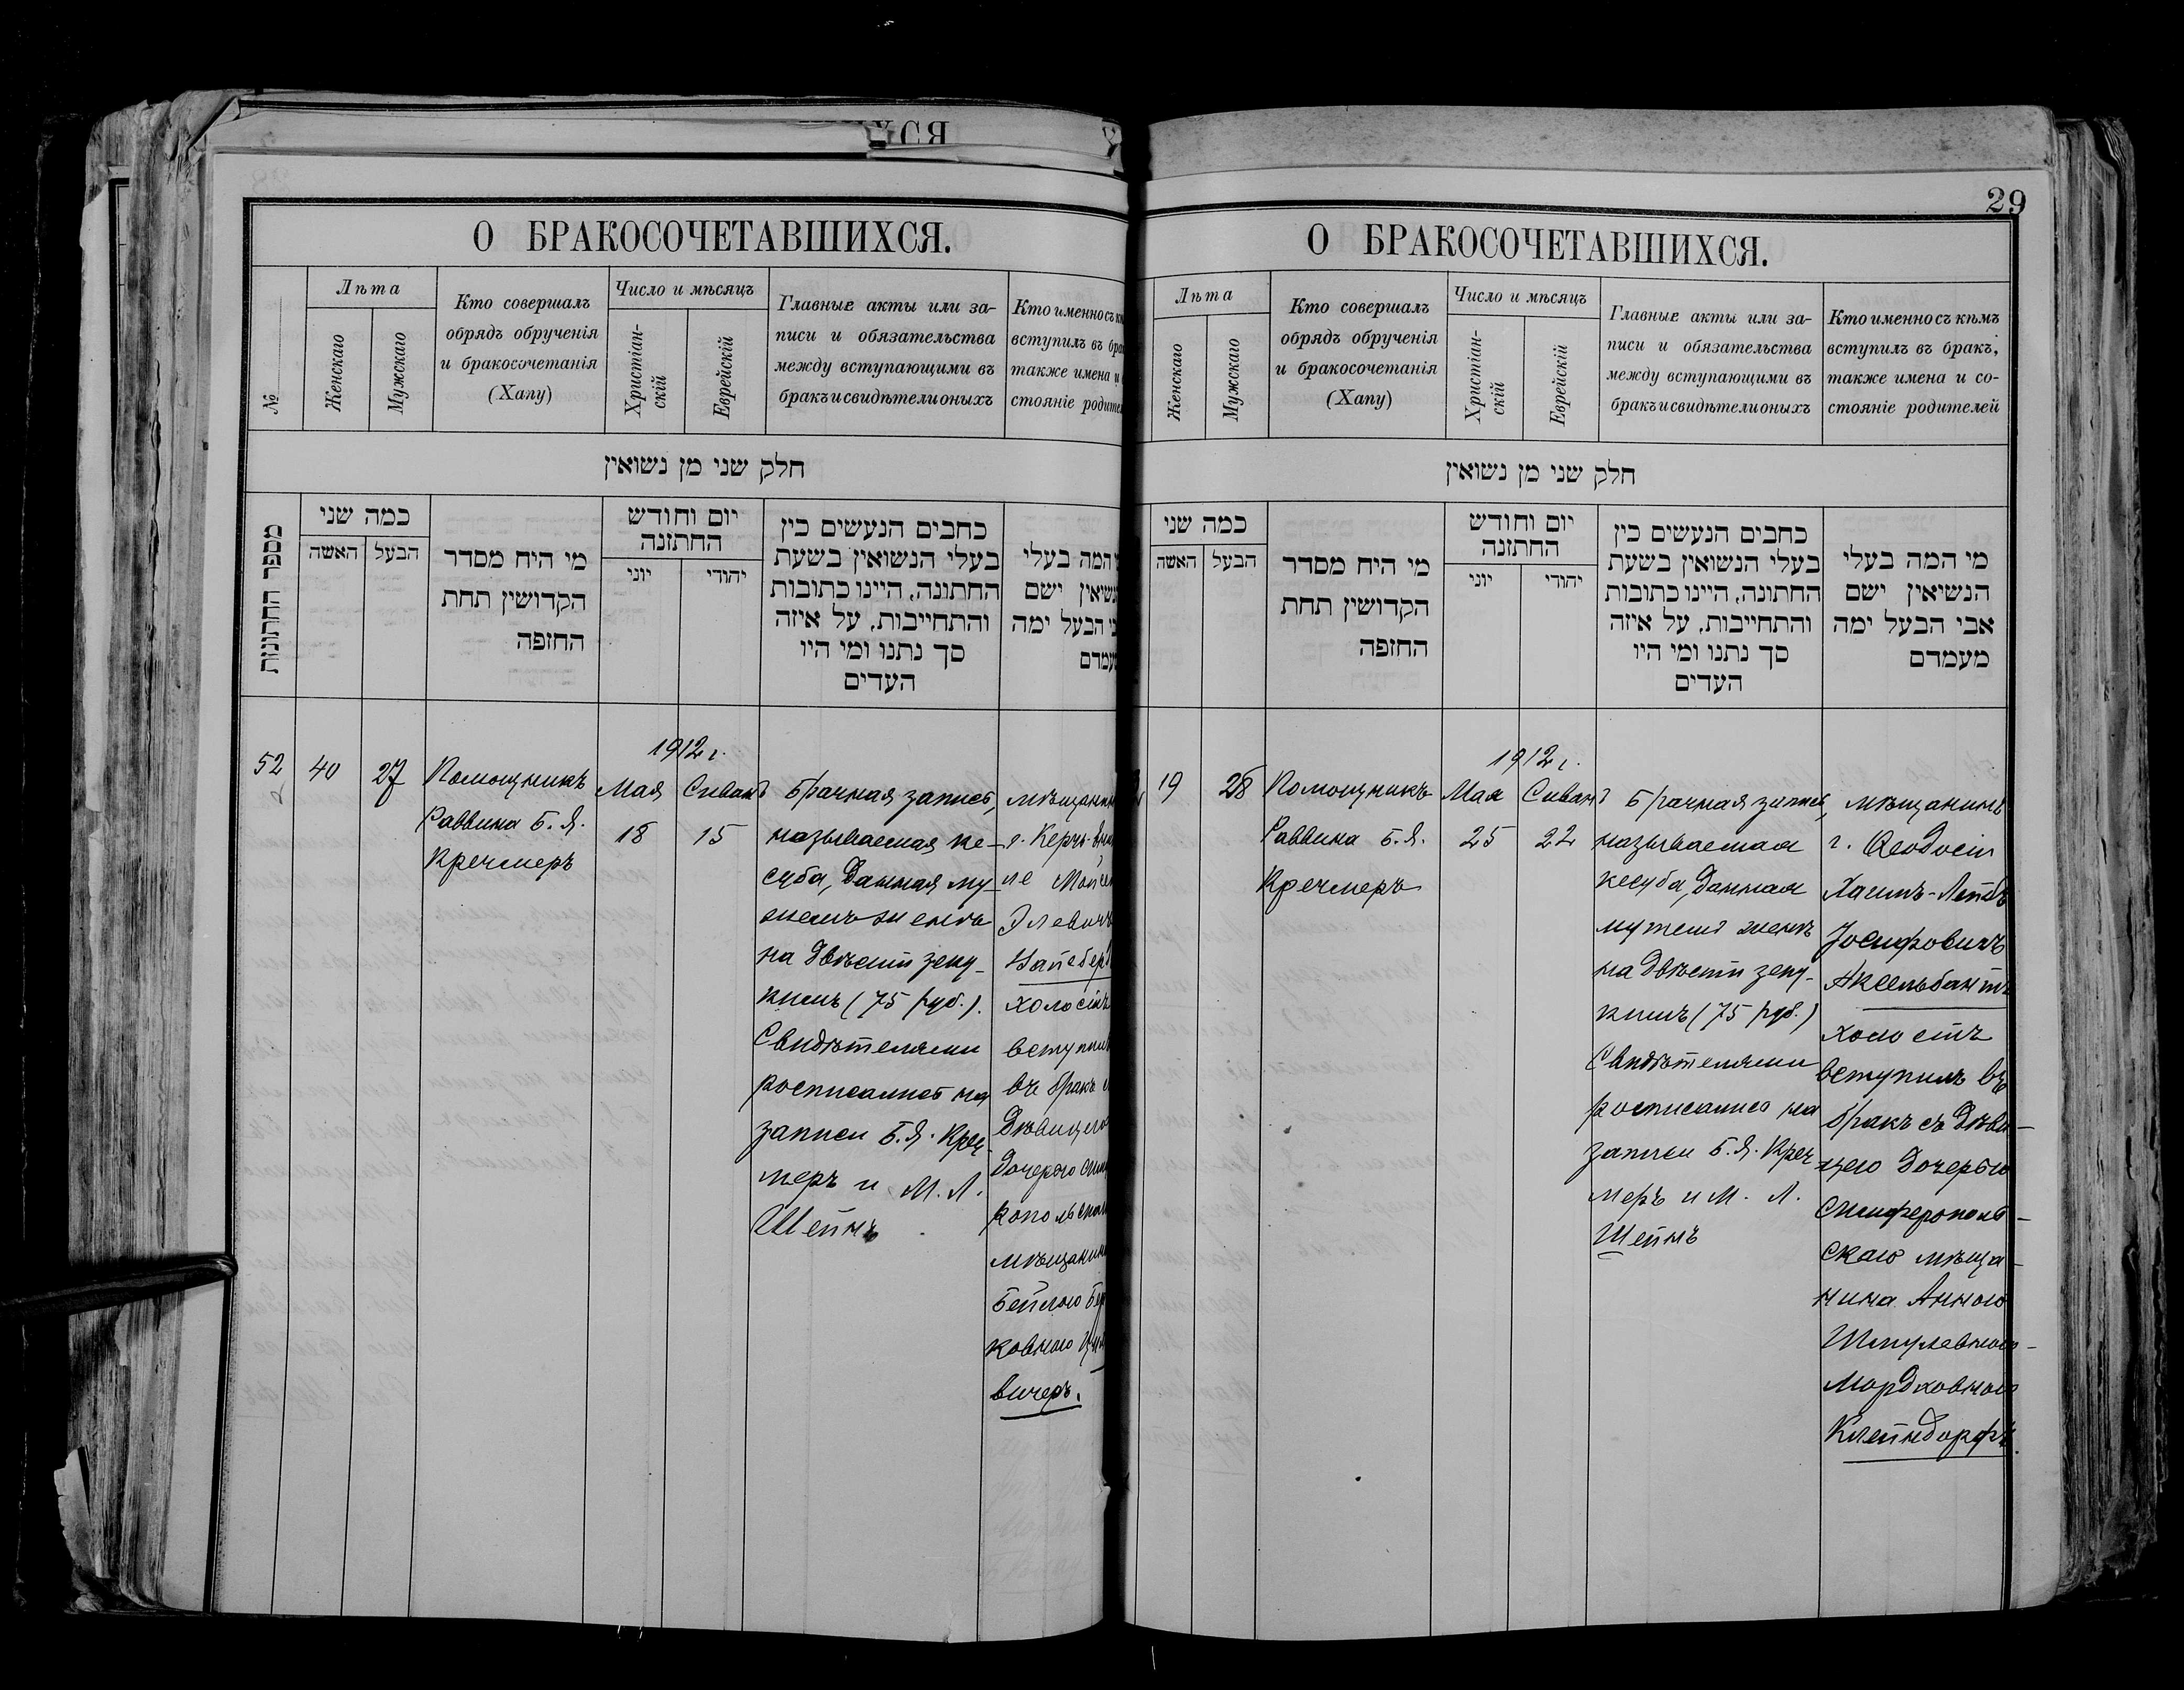 29
О БРАКОСОЧЕТАВШИХСЯ.
№
Лѣта
Женскаго
Мужскаго
Кто совершалъ
обрядъ обрученія
и бракосочетанія
(Хапу)
Число и мѣсяцъ
Христіан-
скій
Еврейскій
Главные акты или за-
писи и обязательства
между вступающими въ
бракъ и свидѣтели оныхъ
Кто именно съ
вступилъ въ
также имена и
стояніе
חלק שני מן נשואין
מספר החתונות
כמה שני
האשה
הבעל
מי היח מסדר
הקדושין תחת
החזפה
יום וחודש
החתזנה
יוני
יהודי
כחבים הנעשים כין
בעלי הנשואין בשעת
החתונה, היינו כתובות
והתחייבות, על איזה
סך נתנו ומי היו
העדים
המה בעלי
ישם
הבעל ימה
52
40
27
Помощникъ
Раввина Б. Я.
Кречмеръ
1912 г.
Мая
18
Сиванъ
15
Брачная запись,
называемая ке-
суба, данная му-
жемъ женѣ
на двѣсти зеку-
кимъ (75 руб.).
Свидѣтелями
росписались на
записи Б. Я. Креч-
меръ и М. Л.
Шейнъ
г. Керчь-
ле
Элевичъ
холостъ
вступилъ
въ бракъ
Дочерью
Бейлою
ковною
вичеръ.
О БРАКОСОЧЕТАВШИХСЯ.
Лѣта
Женскаго
Мужскаго
Кто совершалъ
обрядъ обрученія
и бракосочетанія
(Хапу)
Число и мѣсяцъ
Христіан-
скій
Еврейскій
Главные акты или за-
писи и обязательства
между вступающими въ
бракъ и свидѣтели оныхъ
Кто именно съ кѣмъ
вступилъ въ бракъ,
также имена и со-
стояніе родителей
חלק שני מן נשואין
כמה שני
האשה
הבעל
מי היח מסדר
הקדושין תחת
החזפה
יום וחודש
החתזנה
יוני
יהודי
כחבים הנעשים כין
בעלי הנשואין בשעת
החתונה, היינו כתובות
והתחייבות, על איזה
סך נתנו ומי היו
העדים
מי המה בעלי
הנשיאין ישם
אבי הבעל ימה
מעמדם
19
28
Помощникъ
Раввина Б. Я.
Кречмеръ
1912 г.
Мая
25
Сиванъ
22
Брачная запись,
называемая
кесуба, данная
мужемъ женѣ
на двѣсти зеку-
кимъ (75 руб.)
Свидѣтелями
росписались на
записи Б. Я. Креч
меръ и М. Л.
Шейнъ
Мѣщанинъ
г. Ѳеодосіи
Хаимъ-Лейбъ
Іосифовичъ
Аксельбантъ
холостъ
вступилъ въ
бракъ съ дѣви-
цею дочерью
Симферополь-
скаго мѣща-
нина Анною
Шмулевною-
Мордковною
Клейндорфъ.